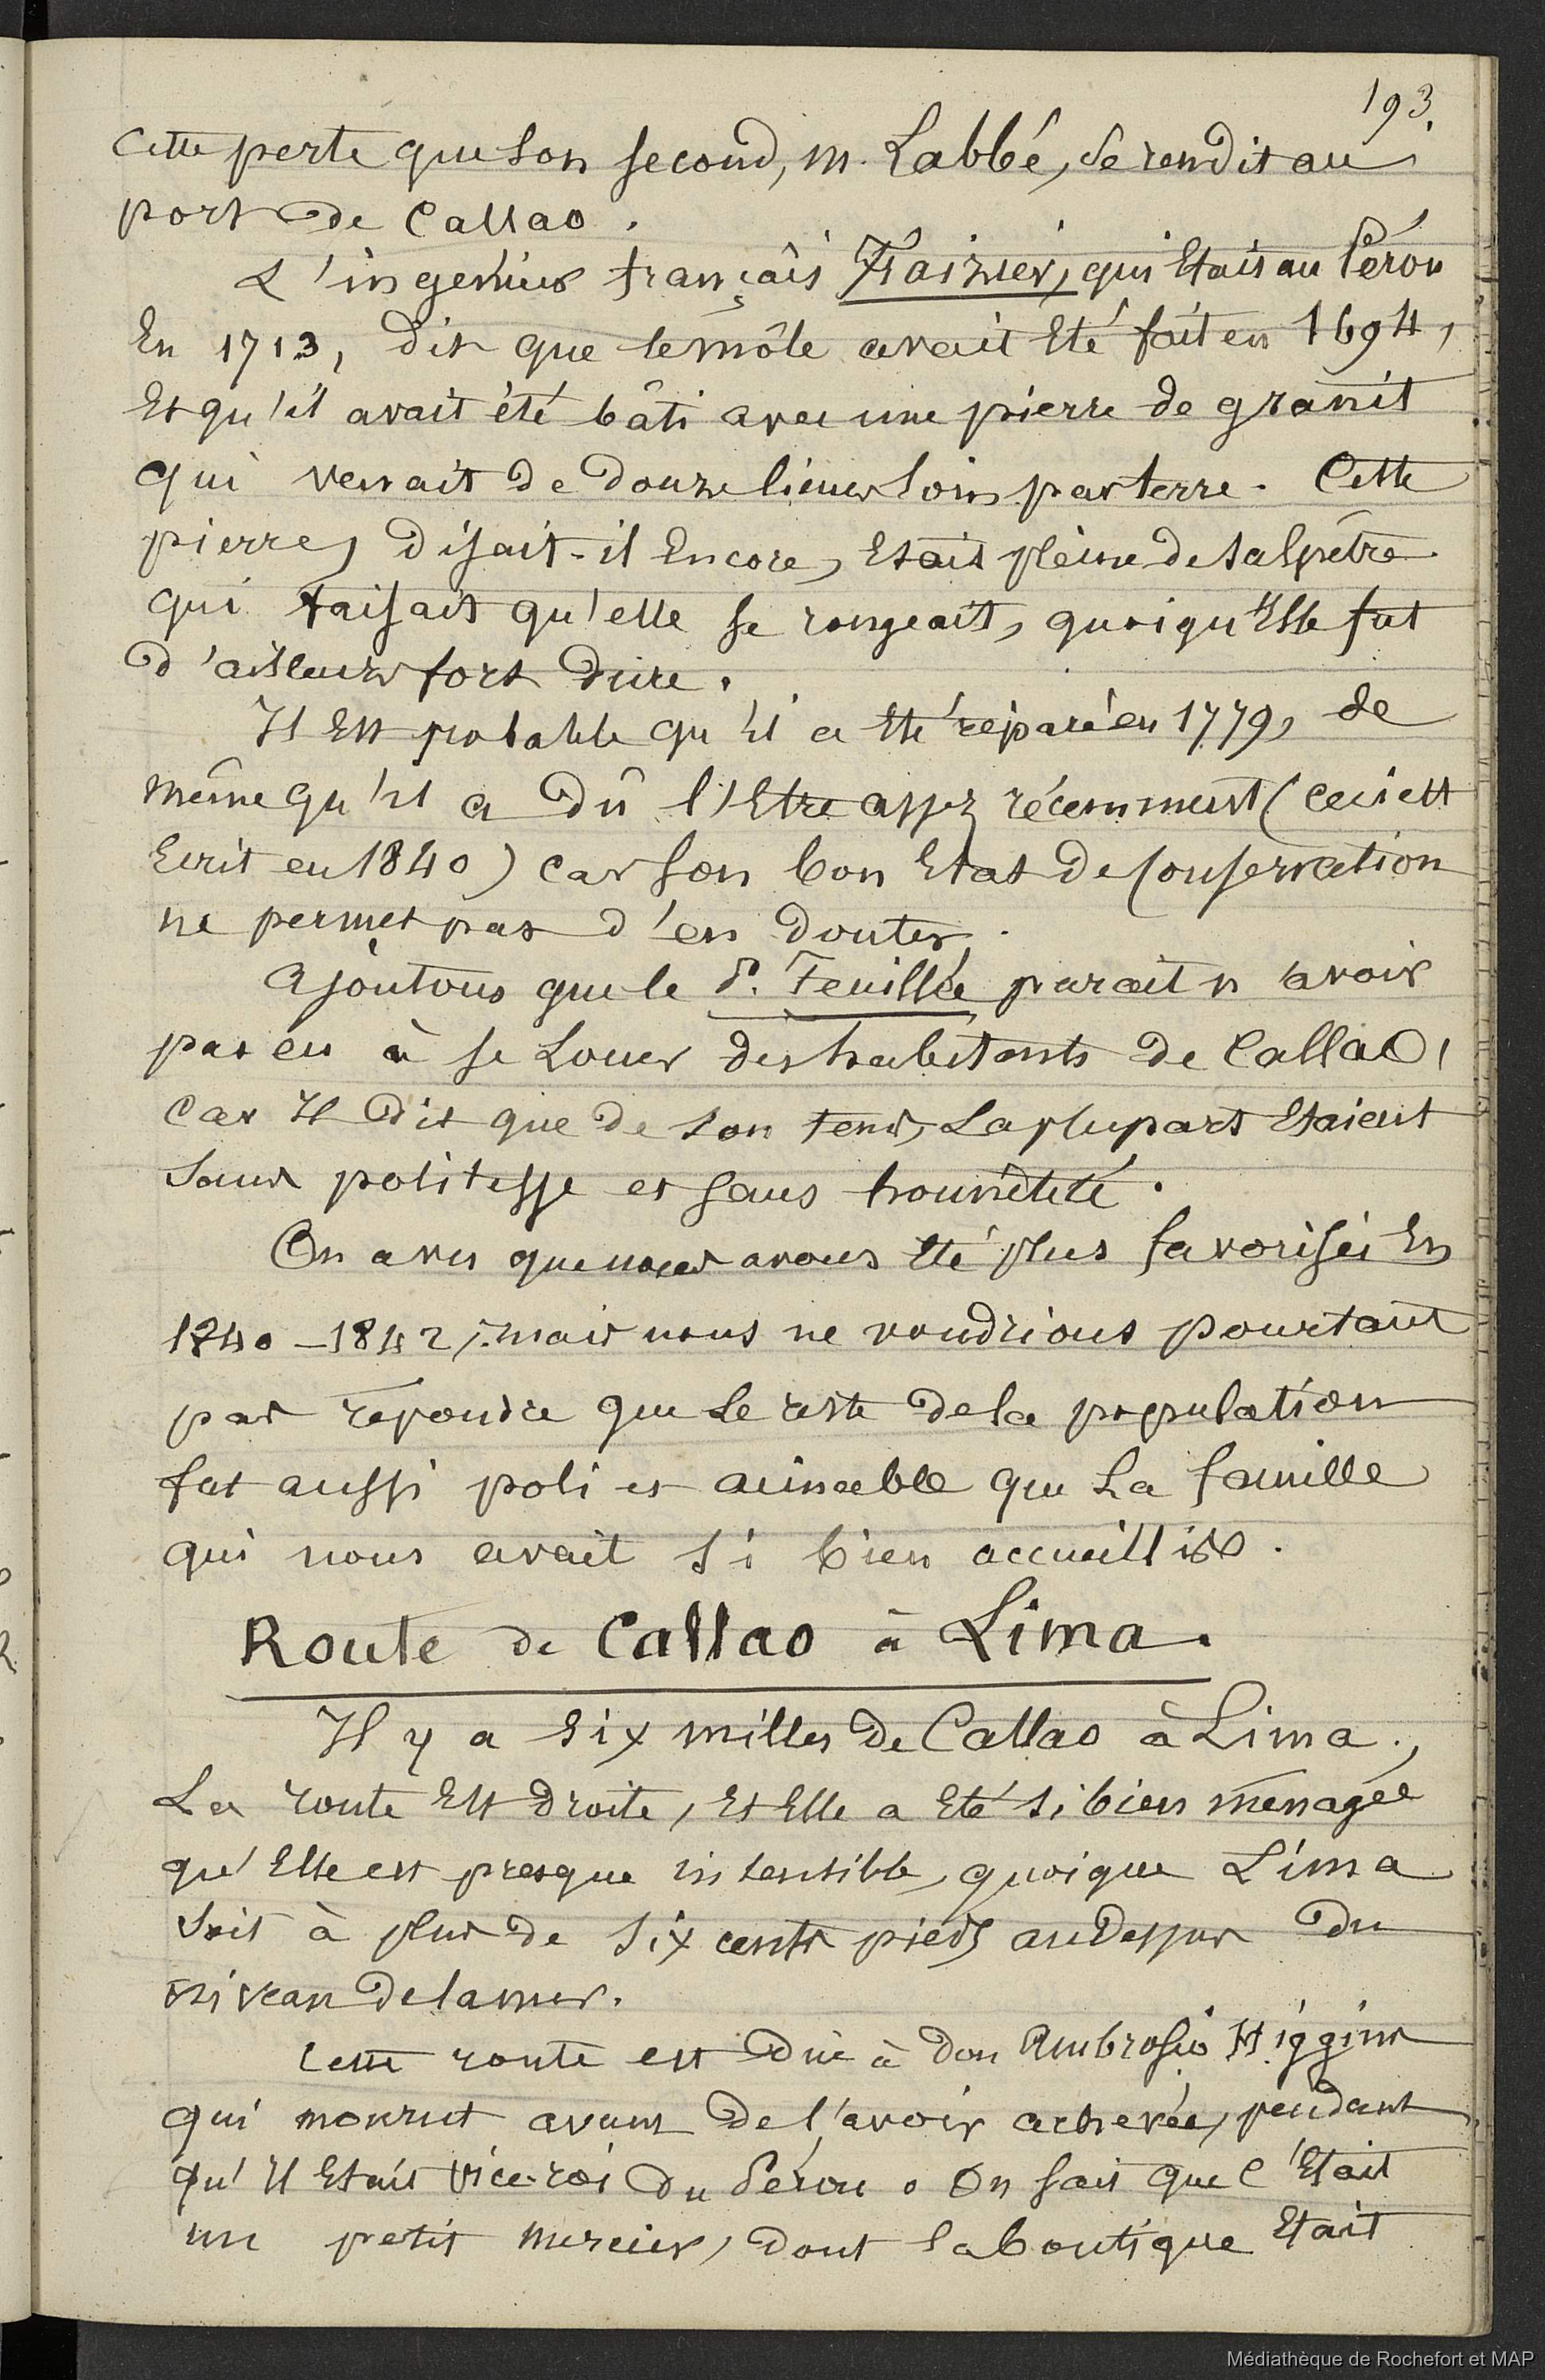 193.
Cette perte que son second, m. Labbé, se rendit au
port de Callao.
L'ingénieur français Fraizier, qui était au Pérou
En 1713, dit que le môle avait été fait en 1694,
Et qu'il avait été bâti avec une pierre de granit
qui venait de douze lieues loin par terre. Cette
pierre, disait-il encore, était pleine de salpêtre
qui faisait qu'elle se rongeait, quoiqu'elle fut
d'ailleurs fort dure.
Il est probable qu'il a été réparé en 1779, de
même qu'il a dû l'être assez récemment (ceci est
Ecrit en 1840) car son bon état de conservation
ne permet pas d'en douter.
Ajoutons que le P. Feuillée parait n'avoir
pas eu à se louer des habitants de Callao,
car il dit que de son tems, la plupart étaient
sans politesse et sans honnêteté.
On a vu que nous avons été plus favorisés En
1840-1842; mais nous ne voudrions pourtant
pas répondre que le reste de la population
fut aussi poli et aimable que la famille
qui nous avait si bien accueillis.
Route de Callao à Lima.
Il y a six milles de Callao à Lima.,
La route est droite, et elle a été si bien ménagée
qu'elle est presque insensible, quoique Lima
soit à plus de six cents pieds au dessus du
niveau de la mer.
Cette route est due à don Ambrosio Higgins
qui mourut avant de l'avoir achevée, pendant
qu'il était vice-roi du Pérou. On sait que c'était
un petit mercier, dont la boutique était
Médiathèque de Rochefort et MAP